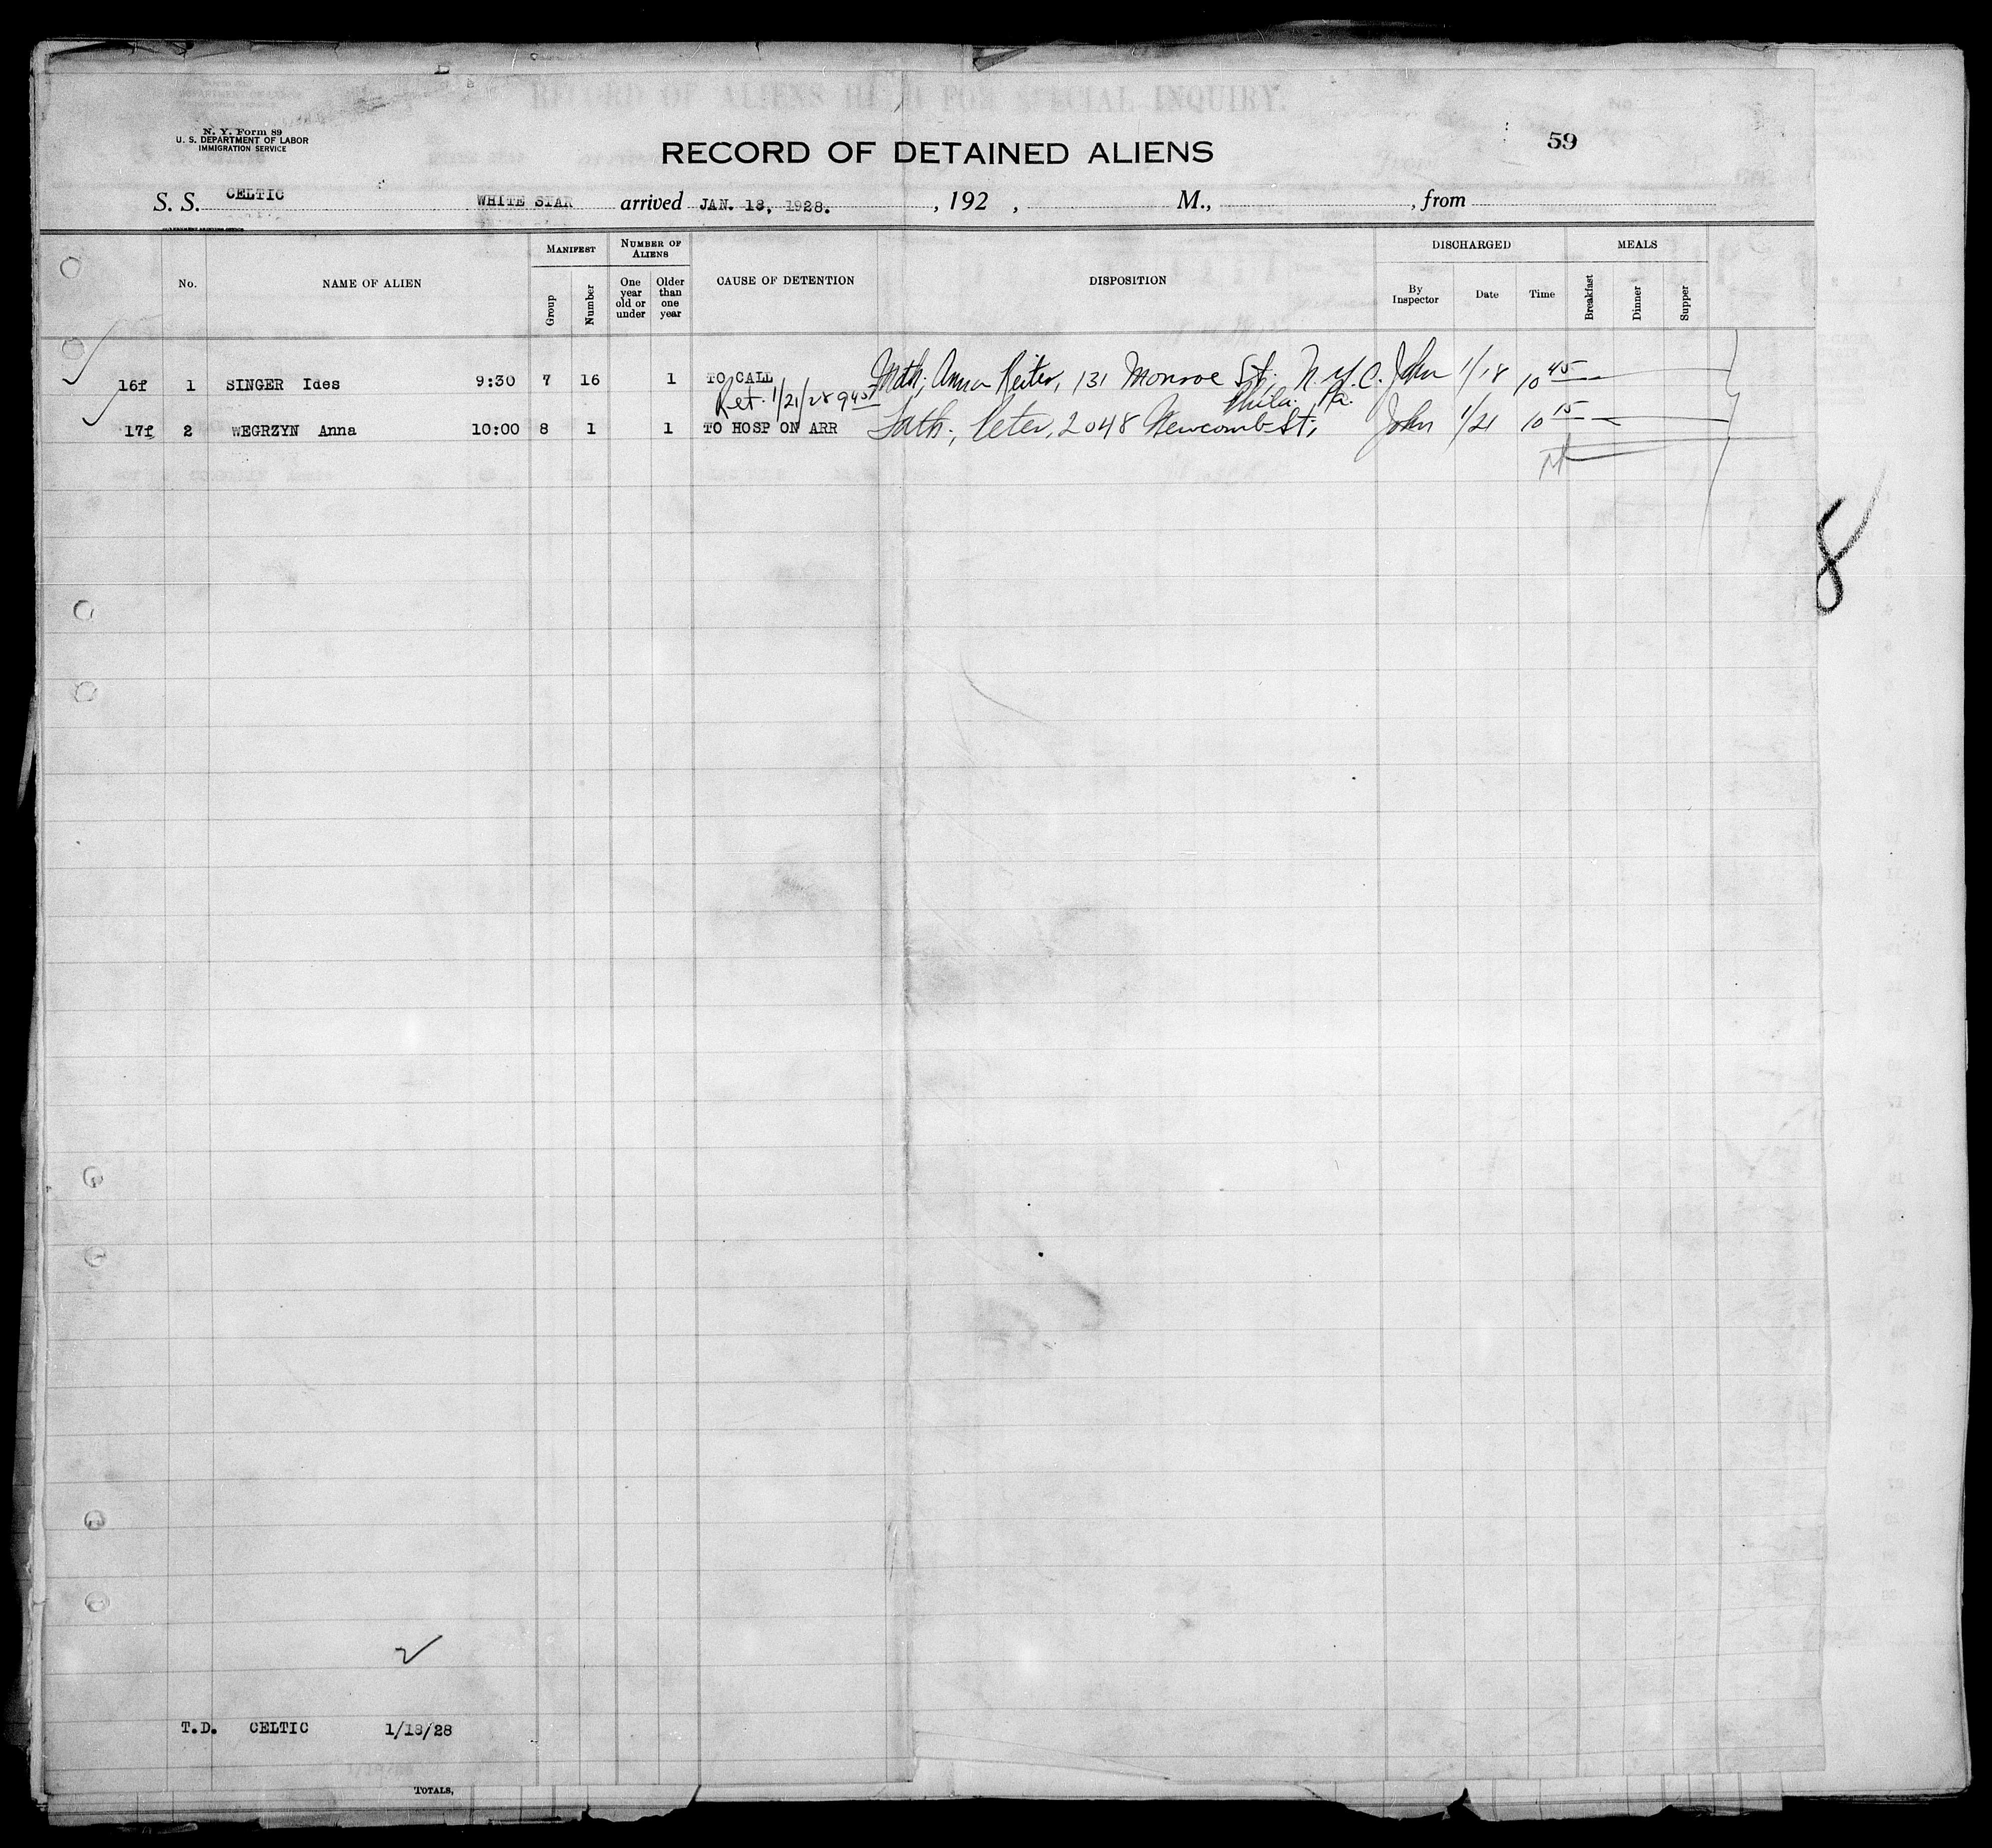 N. Y. Form 89
U. S. DEPARTMENT OF LABOR
IMMIGRATION SERVICE
RECORD OF ALIENS HELD FOR SPECIAL INQUIRY.
RECORD OF DETAINED ALIENS
59
S. S. CELTIC WHITE STAR arrived JAN. 18, 1928. , 192 , M., , from
No. NAME OF ALIEN MANIFEST Group Number NUMBER OF ALIENS One year old or under Older than one year CAUSE OF DETENTION DISPOSITION DISCHARGED By Inspector Date Time MEALS Breakfast Dinner Supper
16f 1 SINGER Ides 9:30 7 16 1 TO CALL Moth; Anna Reiter, 131 Monroe St. N.Y.C. John 1/18 10 45
Ret. 1/21/28 9 45 Phila. Pa.
17f 2 WEGRZYN Anna 10:00 8 1 1 TO HOSP ON ARR Fath; Peter, 2048 Newcomb St; John 1/21 10 15
8
2
T.D. CELTIC 1/18/28
TOTALS,